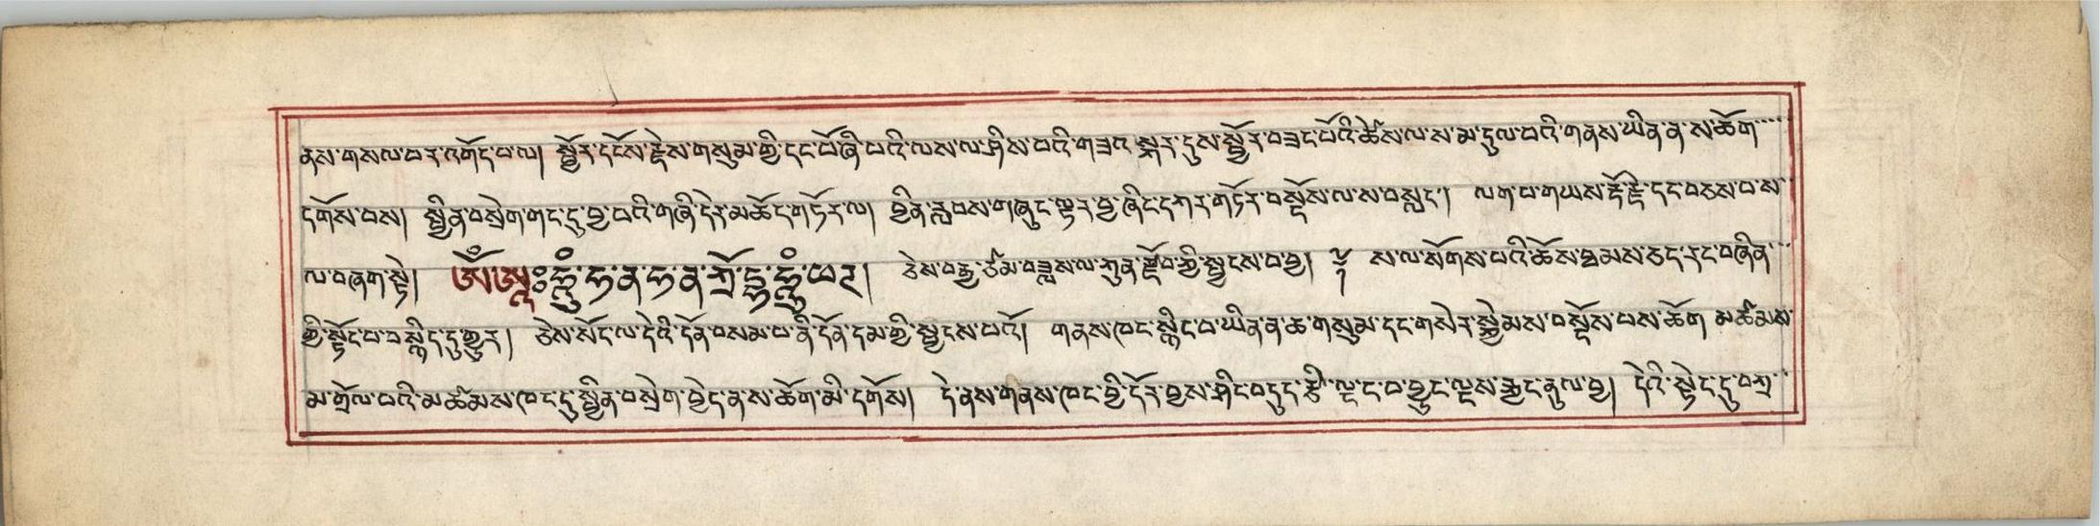 ནས་གསལ་བར་འགོད་པ་ལ། སྦྱོར་དངོས་རྗེས་གསུམ་གྱི་དང་པོ་ནི་པའི་ལས་ལ་ཤིས་པའི་གཟའ་སྐར་དུས་སྦྱོར་བཟང་པོའི་ཚེས་ལ་ས་མ་དུལ་བའི་གནས་ཡིན་ན་ས་ཆོག་
དགོས་པས། སྦྱིན་བསྲེག་གང་དུ་བྱ་བའི་གཞི་དེར་མཆོད་གཏོར་ལ། བྱིན་རླབས་གཞུང་ལྟར་བྱ་ཞིང་དཀར་གཏོར་བསྔོས་ལ་ས་བསླང་། ལག་པ་གཡས་རྡོ་རྗེ་དང་བཅས་པ་ས་
ལ་བཞག་སྟེ། ཨོཾ་ཨཱཿཧཱུྃ་ཧ་ན་ཧ་ན་ཀྲོ་དྷ་ཧཱུྃ་ཕཊ། ཅེས་བརྒྱ་ཙམ་བཟླས་ལ་ཀུན་རྫོབ་ཀྱི་སྦྱངས་པ་བྱ། ས་ལ་སོགས་པའི་ཆོས་ཐམས་ཅད་རང་བཞིན་
གྱི་སྟོང་པ་བསྙིད་དུ་གྱུར། ཅེས་སོང་ལ་དེའི་དོན་བསམ་པ་ནི་དོན་དམ་གྱི་སྦྱངས་པའོ། གནས་ཁང་སྙིང་པ་ཡིན་ན་ཆ་གསུམ་དང་གསེར་སྐྱེམས་བསྔོས་པས་ཆོག མཚམས་
མ་གྲོལ་བའི་མཚམས་ཁང་དུ་སྦྱིན་བསྲེག་བྱེད་ན་ས་ཆོག་མི་དགོས། དེ་ནས་གནས་ཁང་ཕྱི་དོར་བྱས་ཤིང་བདུད་རྩི་ལྔ་ང་བ་བྱུང་ལྔས་རྒྱང་ནུལ་བྱ། དེའི་སྟེང་དུ་བཀྲ་